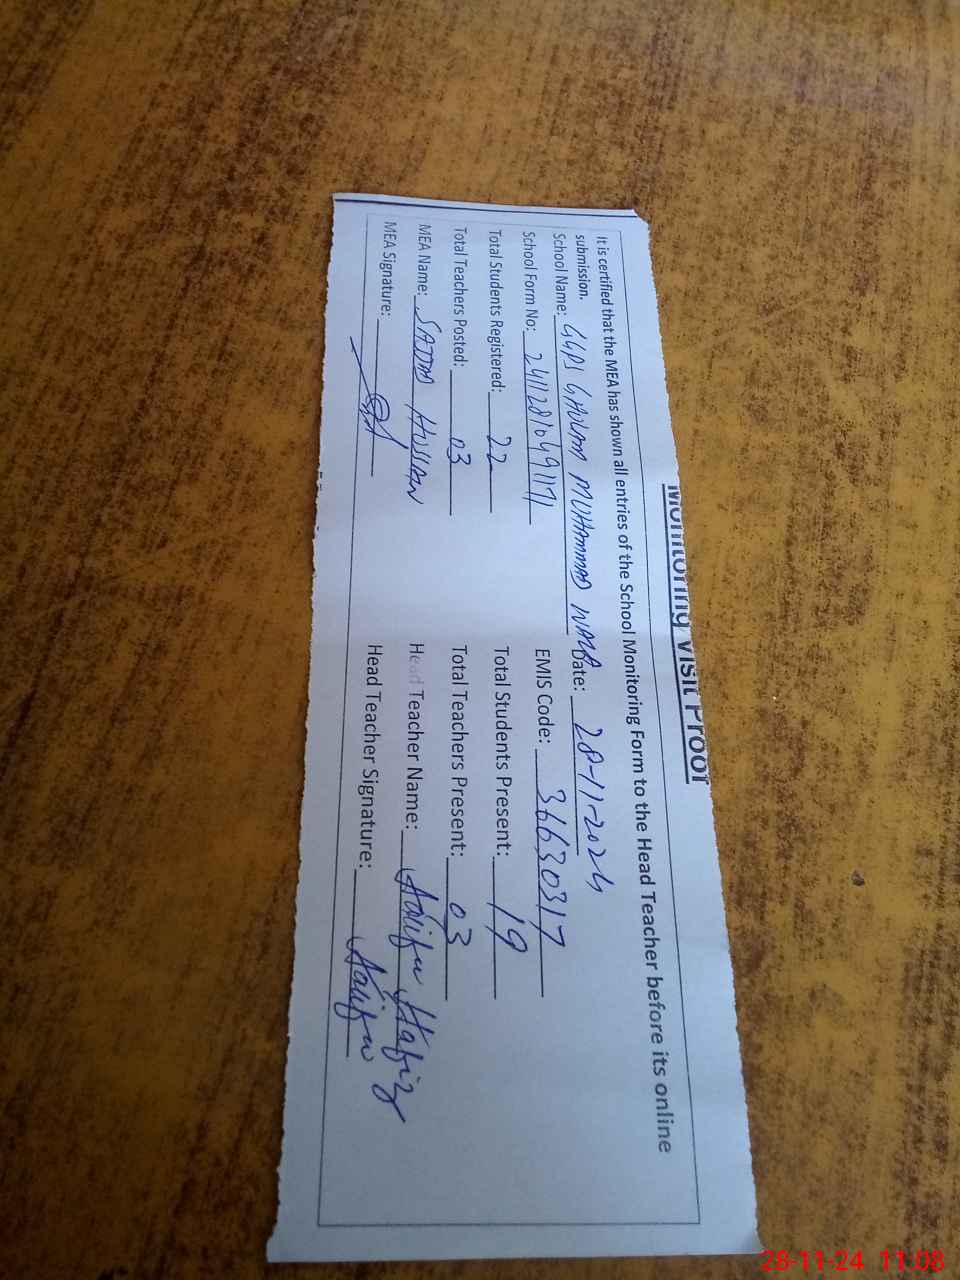 Monitoring Visit Proof
It is certified that the MEA has shown all entries of the School Monitoring Form to the Head Teacher before its online
submission.
School Name: GGPS GHULAM MUHAMMAD WALA Date: 28-11-2024
School Form No: EMIS Code: 36630317
Total Students Registered: 22 Total Students Present: 19
Total Teachers Posted: 03 Total Teachers Present: 03
MEA Name: SAJJAD HUSSAIN Head Teacher Name: Hafiz
MEA Signature: Head Teacher Signature:
28-11-24 11:08